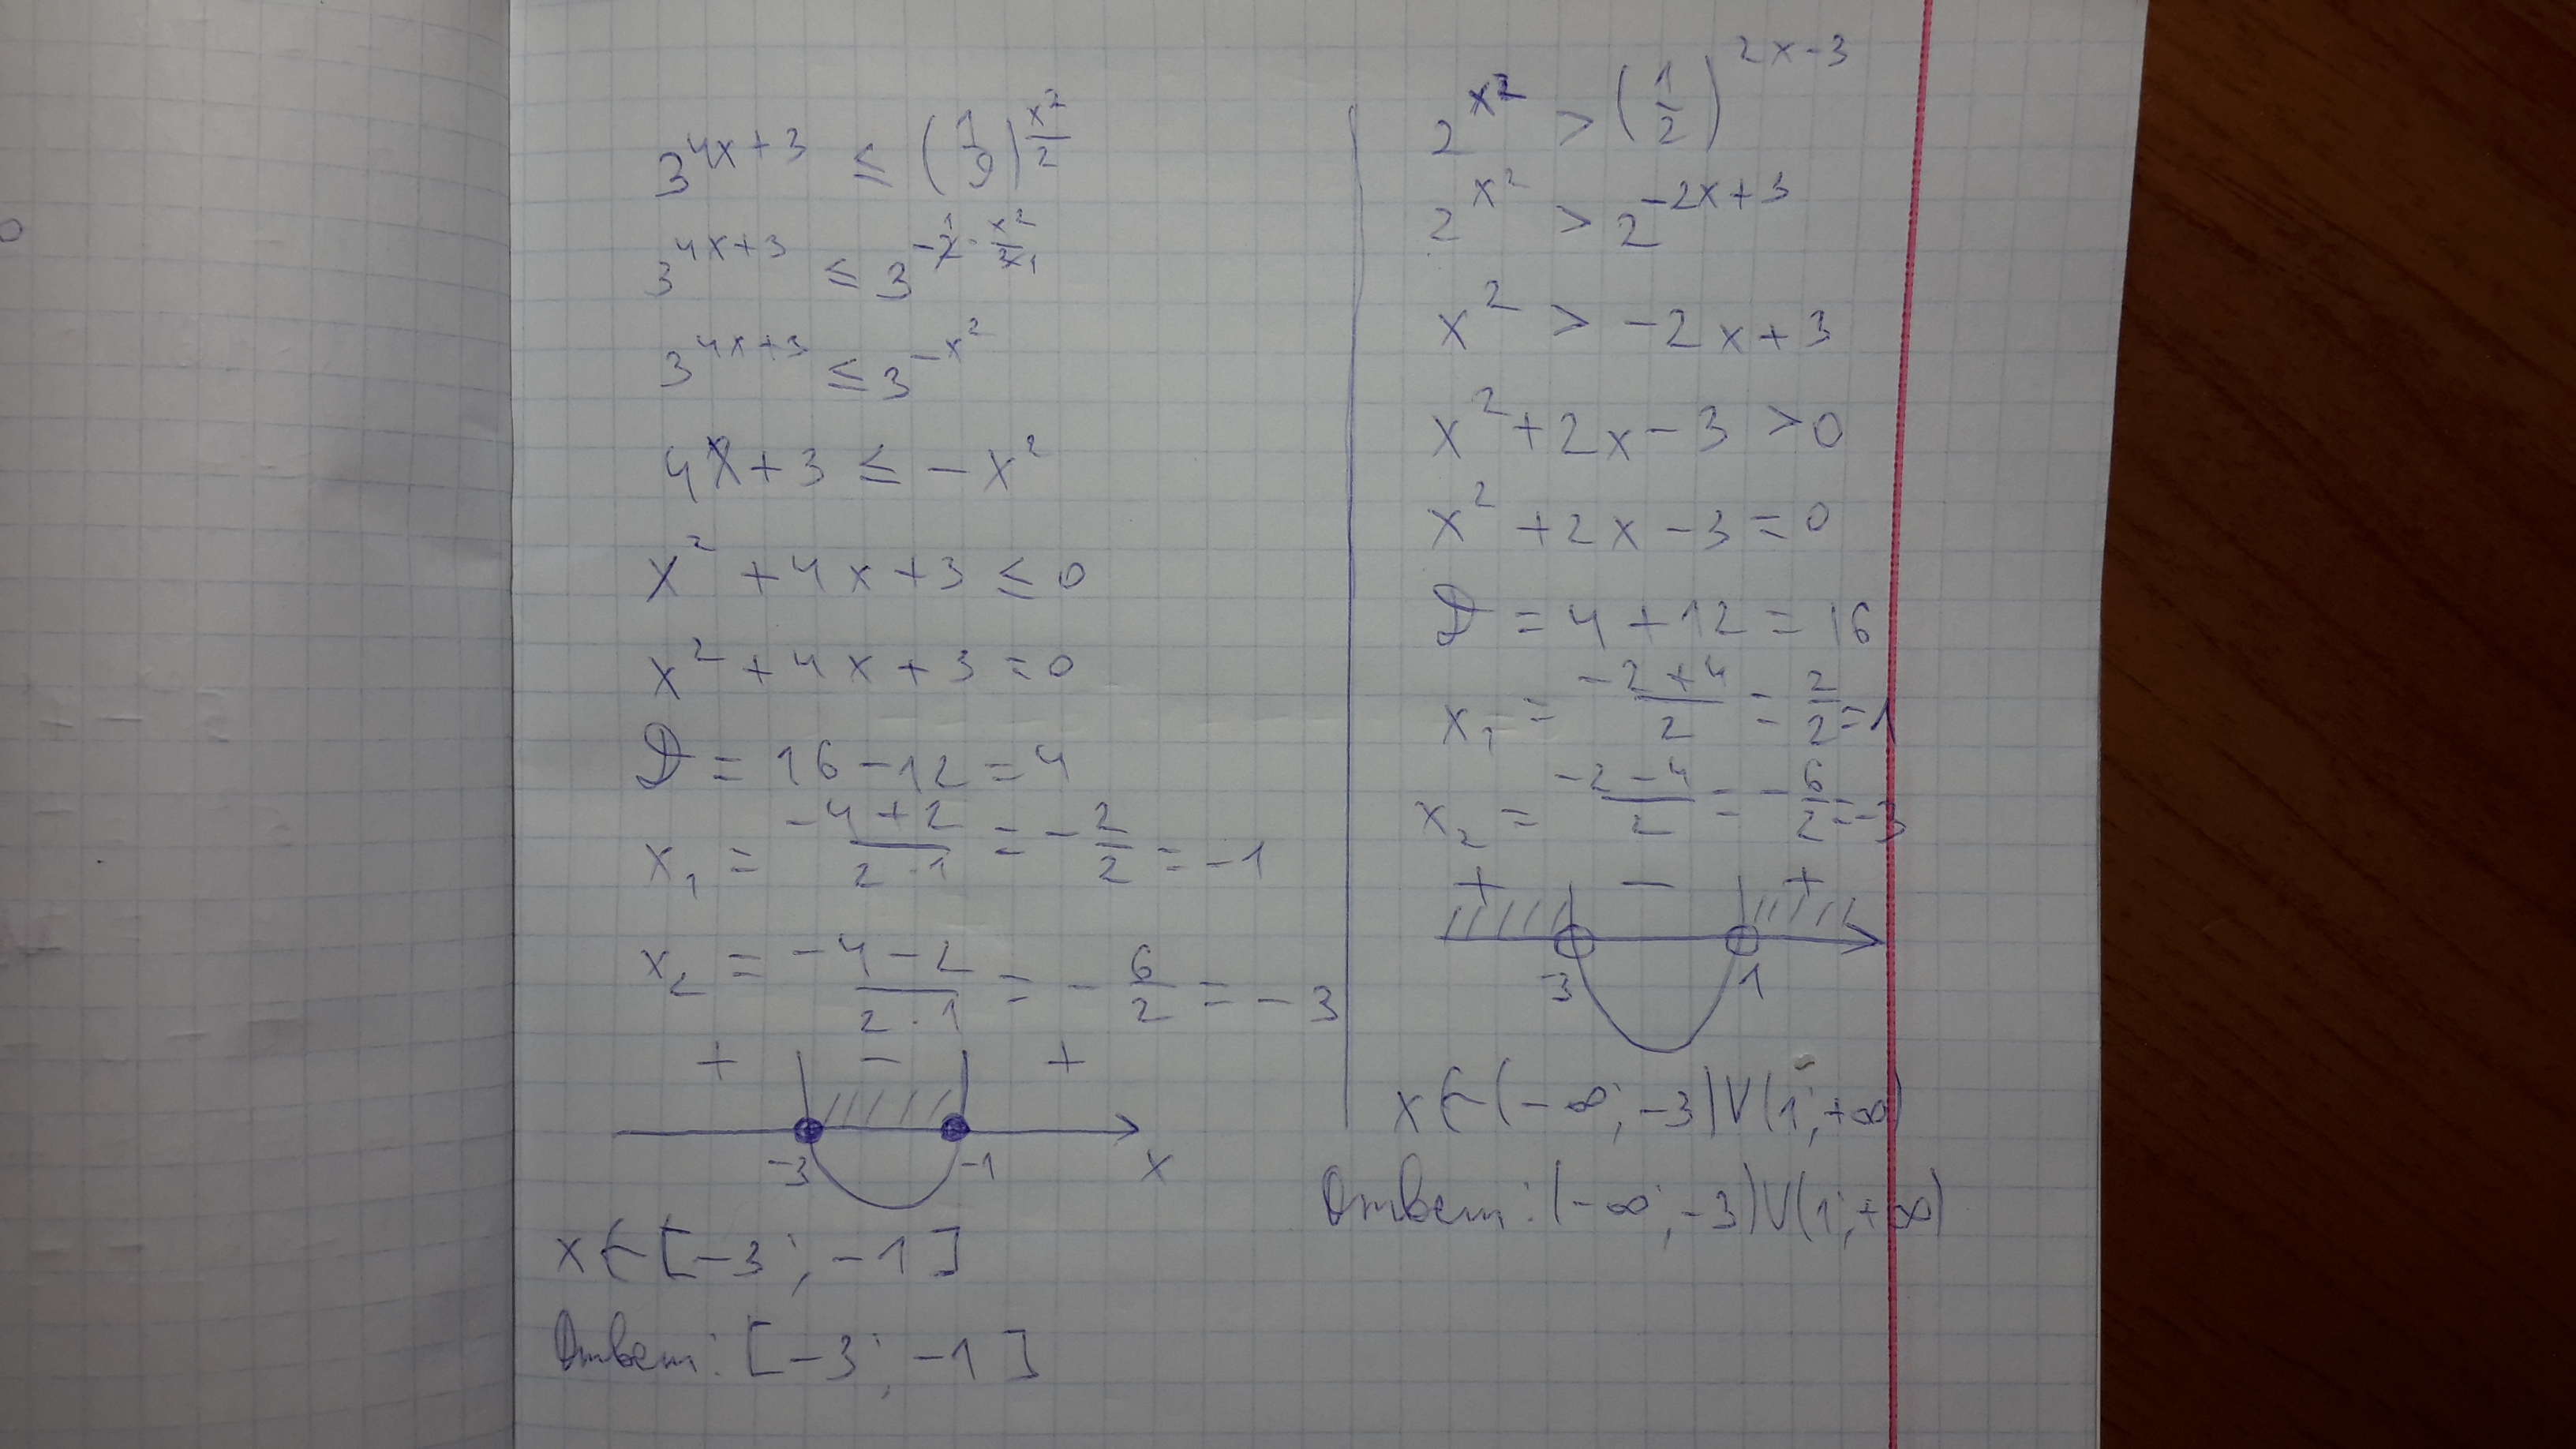 3^{4x+3} ≤ (1/9)^{x²/2}
3^{4x+3} ≤ 3^{-2·x²/2}
3^{4x+3} ≤ 3^{-x²}
4x+3 ≤ -x²
x² + 4x + 3 ≤ 0
x² + 4x + 3 = 0
D = 16 - 12 = 4
x₁ = (-4+2)/(2·1) = -2/2 = -1
x₂ = (-4-2)/(2·1) = -6/2 = -3
+ - +
-3 -1 x
x ∈ [-3; -1]
Ответ: [-3; -1]
2^{x²} > (1/2)^{2x-3}
2^{x²} > 2^{-2x+3}
x² > -2x+3
x²+2x-3 >0
x² +2x-3=0
D = 4+12=16
x₁ = (-2+4)/2 = 2/2 = 1
x₂ = (-2-4)/2 = -6/2 = -3
+ - +
-3 1
x ∈ (-∞; -3)∪(1; +∞)
Ответ: (-∞; -3)∪(1; +∞)